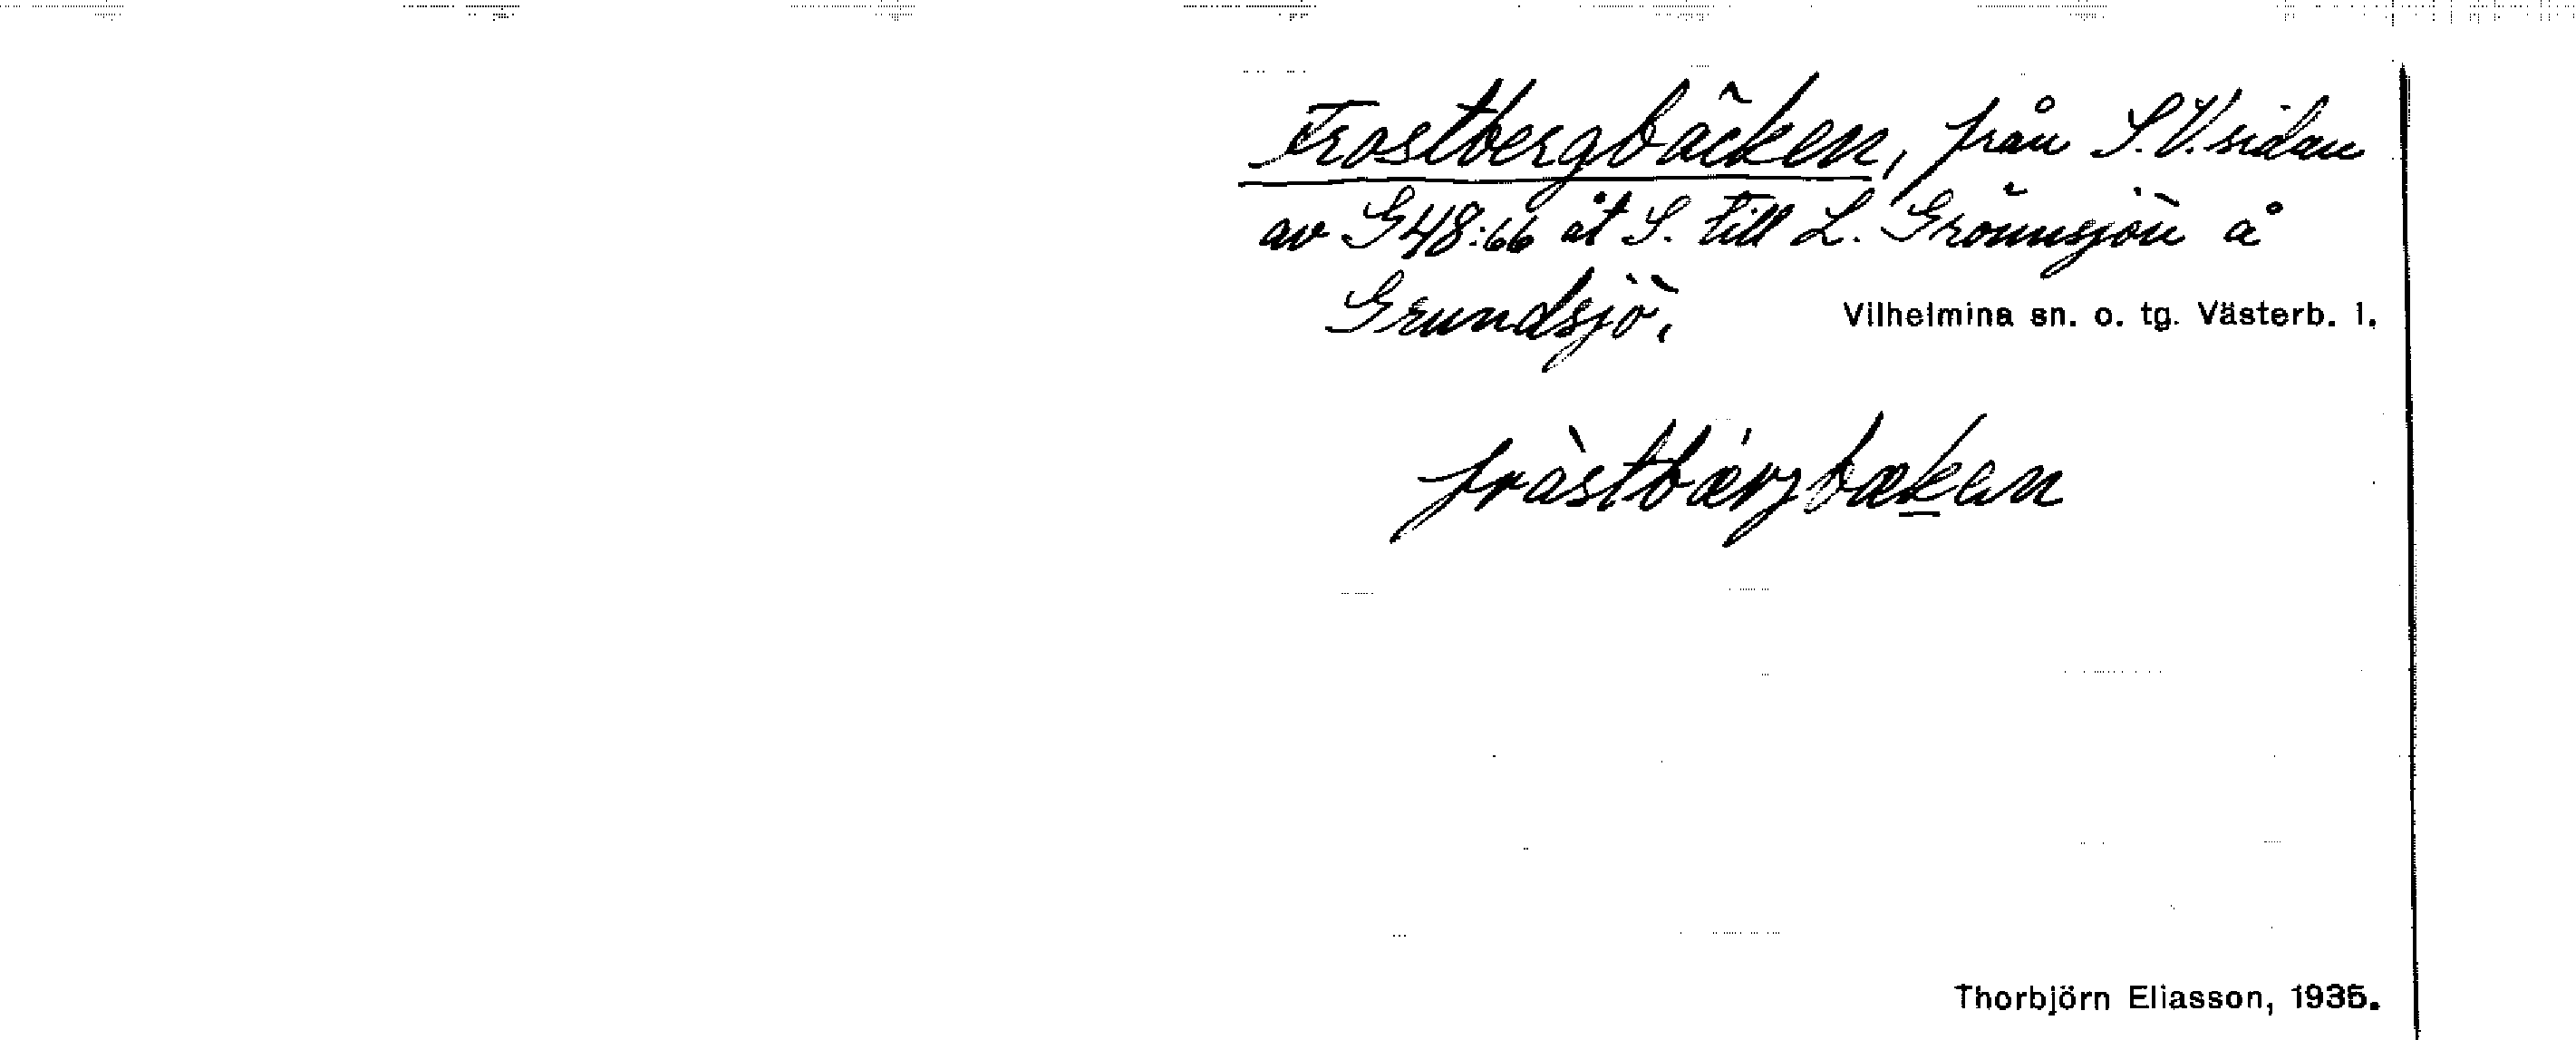 Frostbergbäcken, från S.V. sidan
av G48:66 åt S. till L. Grönnsjön å
Grundsjö.
Vilhelmina sn. o. tg. Västerb. l.
fràstbærjbækan
Thorbjörn Eliasson, 1935.